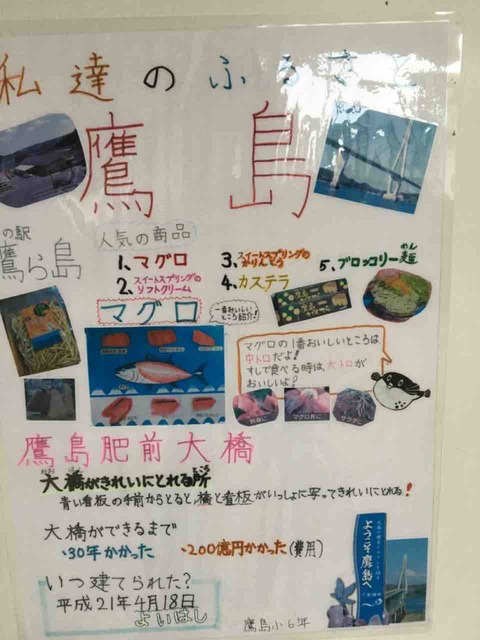 私達のふるさと
鷹島
の駅
鷹ら島
人気の商品
1.マグロ
2.スイートスプリングの
ソフトクリーム
3.スイートスプリングの
かりんとう
4.カステラ
5.ブロッコリー麺
めん
マグロ
一番おいしい
ところ紹介!
マグロの1番おいしいところは
中トロだよ!
すしで食べる時は、大トロが
おいしいよ!
鷹島肥前大橋
大橋がきれいにとれる所
青い看板の手前からとると、橋と看板がいっしょに写ってきれいにとれる!
大橋ができるまで
・30年かかった
・200億円かかった(費用)
いつ建てられた?
平成21年4月18日
よいはし
ようこそ鷹島へ
鷹島小6年